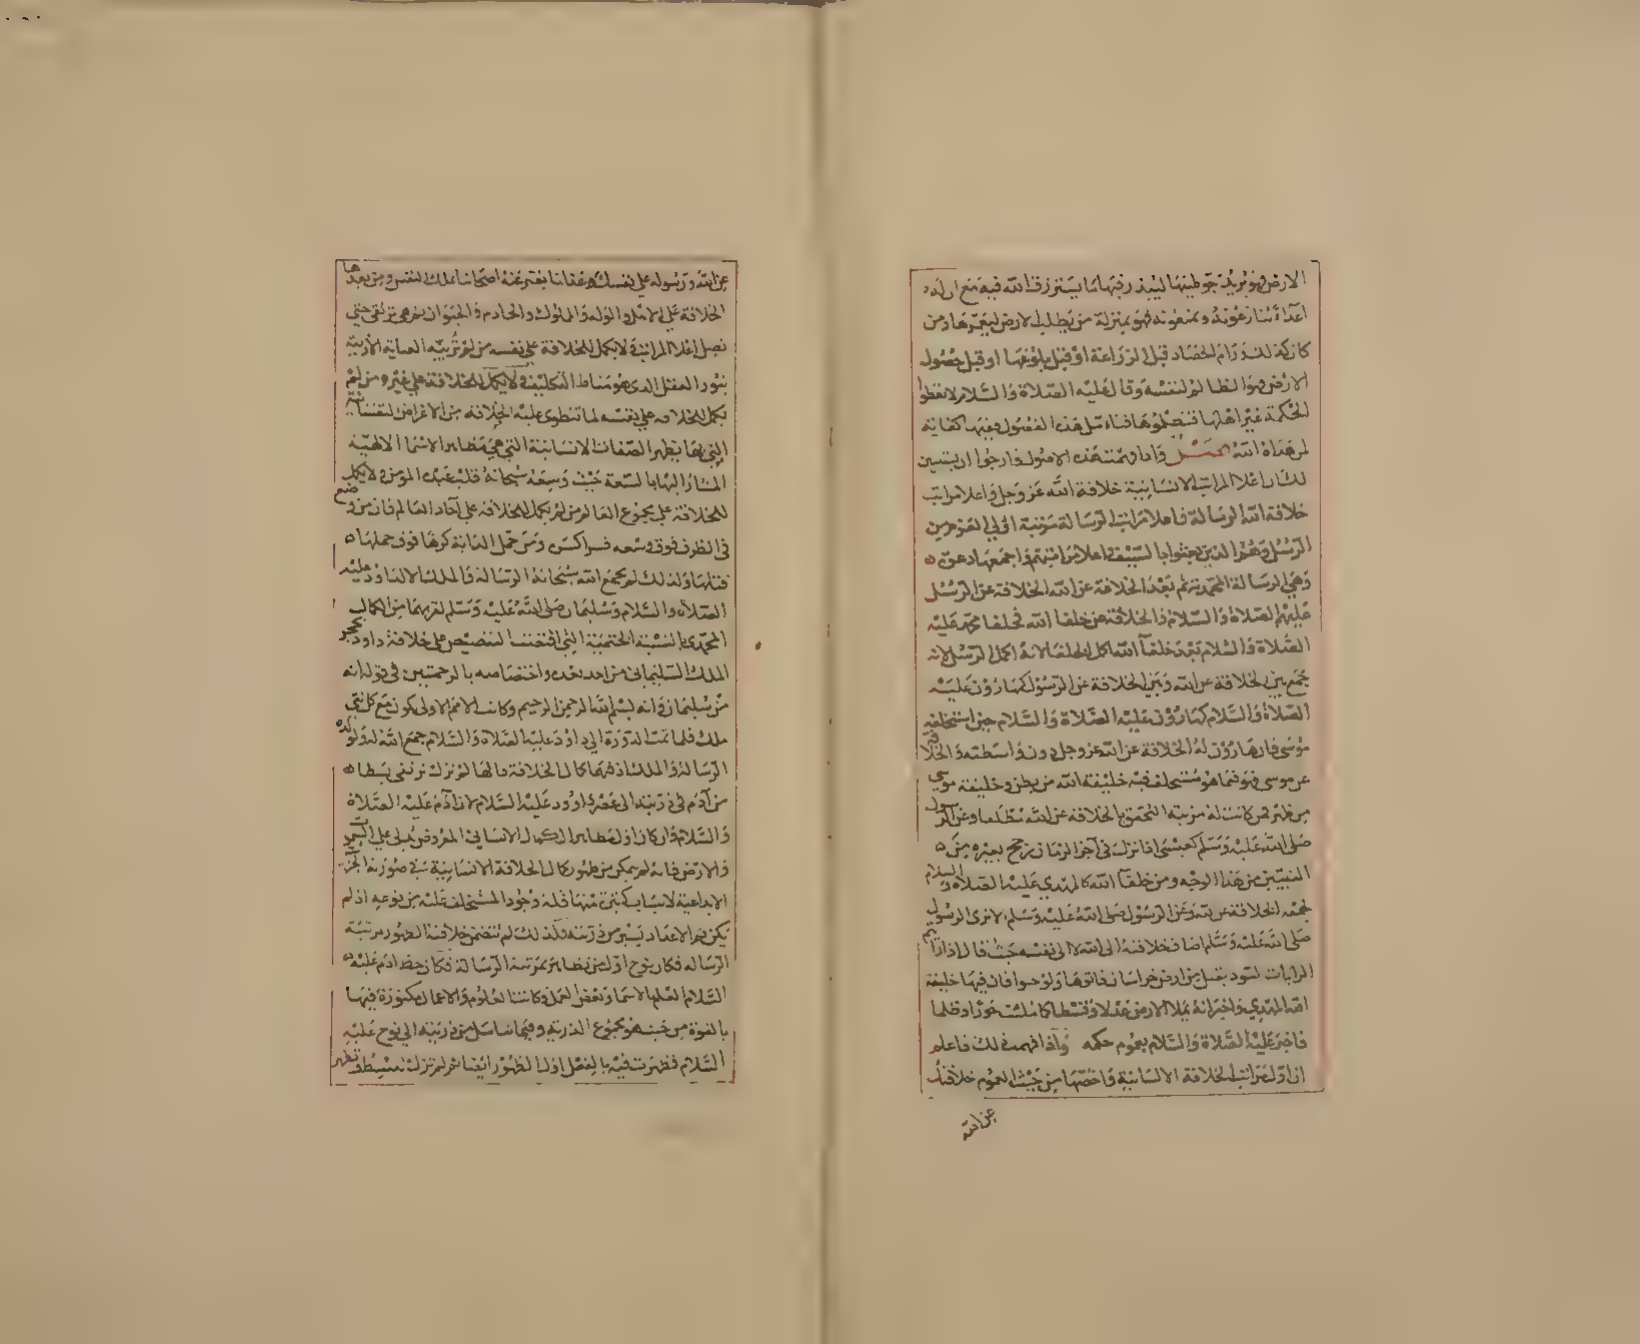 الارض فهو يريد حوطيتها ليبذر فيها ما يسترزق الله فيه مع ان له
اعداء ينازعونه ويمنعونه فهو بمنزلة من يطلب الارض ليعمرها ومن
كان كذلك ورام الحصاد قبل الزراعة او قبل بلوغها او قبل حصول
الارض فهو الظالم لنفسه وقال عليه الصلاة والسلام لا تعطوا
الحكمة غير اهلها فتظلموها فتامل هذه الفصول ففيها كفاية
لمن هداه الله فصل واذا فهمت هذه الاصول فارجوا ان يتبين
لك ان اعلا المراتب الانسانية خلافة الله عز وجل واعلا مراتب
خلافة الله الرسالة فاعلا مراتب الرسالة مرتبة اولي العزم من
الرسل وهم الذين بعثوا بالسيف واعلا مراتبهم واجمعها دعوة
وهي الرسالة المحمدية ثم بعد الخلافة عن الله الخلافة عن الرسل
عليهم الصلاة والسلام والخلافة عن خلفا الله فخلفا محمد عليه
الصلاة والسلام بعد خلفآ الله اكمل الخلفا لانه اكمل الرسل لانه
جمع بين الخلافة عن الله وبين الخلافة عن الرسول كهارون عليه
الصلاة والسلام كهارون عليه الصلاة والسلام حين استخلفه
موسى فان هارون له الخلافة عن الله عز وجل دون واسطته والخلافة
عن موسى فهو فيما هو مستخلف فيه خليفة الله من بطن وخليفة موسى
من ظهر فمن كانت له مرتبة التحقق بالخلافة عن الله مطلعا وعن الرسول
صلى الله عليه وسلم كعيسى اذا نزل في آخر الزمان يرجح بغيره من
النبيين من هذا الوجه ومن خلفآ الله كالمهدي عليه الصلاة والسلام
لجمعه الخلافة عن الله وعن الرسول صلى الله عليه وسلم الا ترى الرسول
صلى الله عليه وسلم اضاف خلافته الى الله لا الى نفسه حيث قال اذا رايتم
الرايات السود تقبل من ارض خراسان فاتوها ولو حبوا فان فيها خليفة
الله المهدي واخبر انه يملا الارض عدلا وقسطا كما ملئت جورا وظلما
فاخبر عليه الصلاة والسلام بعموم حكمه واذا فهمت ذلك فاعلم
ان اول مراتب الخلافة الانسانية واخصها من حيث العموم خلافتك
عن الله
عن الله ورسوله على نفسك وعقلنا يعتبر عنه اصحابنا بملك النفس ومن بعدها
الخلافة على الاهل والولد والمملوك والخادم والحيوان ثم هي ترتقي حتى
تصل اعلا المراتب ولا يكمل للخلافة على نفسه من لم تربيه العناية الازلية
بنور العقل الذي هو مناط التكليف ولا يكمل للخلافة على غيره من لم
يكمل للخلافة على نفسه لما تنطوي عليه الخلافة من الاغراض النفسانية
التي بها يظهر الصفات الانسانية التي هي مظاهر الاسما الالهية
المشار اليها بالسعة حيث وسعه سبحانه قلب عبده المؤمن ولا يكمل
للخلافة على مجموع العالم من لم يكمل للخلافة على آحاد العالم فان من وضع
في الظرف فوق وسعه فسر اكسر ومن حمل الدابة كرها فوق حملها
قتلها ولذلك لم يجمع الله سبحانه الرسالة والملك الا لداود عليه
الصلاة والسلام وسليمان صلى الله عليه وسلم لقربهما من الكمال
المحمدي بالنسبة الختمية التي اقتضت لتنصيص على خلافة داود بحجر
الملك السليماني من احد بعده واختصاصه بالرحمتين في قوله انه
من سليمان وانه بسم الله الرحمن الرحيم وكانت الامم الاولى يكون مع كل نبي
ملك فلما تمت الدورة الى داود عليه الصلاة والسلام جمع الله له ولولده
الرسالة والملك اذ فيها كمال الخلافة فانها لم تزل ترتقي بسطا
من آدم في ذريته الى عصر داود عليه السلام لان آدم عليه الصلاة
والسلام وان كان اول مظاهر الكمال الانساني المعروض على السموات
والارض فانه لم يمكن من ظهور كمال الخلافة الانسانية في صورته
الابداعية لاسباب كثيرة منها قلة وجود المستخلف عليه من نوعه اذ لم
يكن فيه الاعداد يسير من ذريته فلذلك لم تنضم خلافته الظهور مرتبة
الرسالة فكان نوح اول من تظاهر بمرتبة الرسالة فكان حظ ادم عليه
السلام العلم بالاسما وبعض العمل وكانت العلوم والاعمال مكنوزة فيها
بالقوة من حيث هو مجموع الذرية وفيما تناسل من ذريته الى نوح عليه
السلام فظهرت فيه بالفعل اول الظهور ايضا ثم لم تزل تنبسط وتظهر